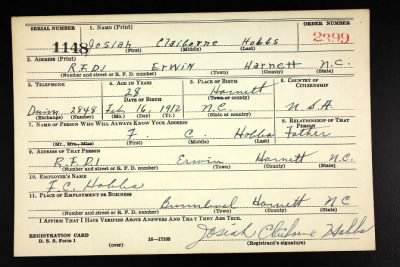 SERIAL NUMBER 1. NAME (Print) ORDER NUMBER
1148 Josiah Claiborne Hobbs 2399
(First) (Middle) (Last)
2. ADDRESS (Print)
R.F.D.1 Erwin Harnett N.C.
(Number and street or R. F. D. number) (Town) (County) (State)
3. TELEPHONE 4. AGE IN YEARS 5. PLACE OF BIRTH 6. COUNTRY OF CITIZENSHIP
28 Harnett
DATE OF BIRTH (Town or county)
2848 Feb 16, 1912 N.C. U.S.A.
(Exchange) (Number) (Mo.) (Day) (Yr.) (State or country)
7. NAME OF PERSON WHO WILL ALWAYS KNOW YOUR ADDRESS 8. RELATIONSHIP OF THAT PERSON
F C. Hobbs Father
(Mr., Mrs., Miss) (First) (Middle) (Last)
9. ADDRESS OF THAT PERSON
R.F.D.1 Erwin Harnett N.C.
(Number and street or R. F. D. number) (Town) (County) (State)
10. EMPLOYER'S NAME
F.C. Hobbs
11. PLACE OF EMPLOYMENT OR BUSINESS
Harnett NC
(Number and street or R. F. D. number) (Town) (County) (State)
I AFFIRM THAT I HAVE VERIFIED ABOVE ANSWERS AND THAT THEY ARE TRUE.
REGISTRATION CARD
D. S. S. Form 1 (over) 16—17105 Josiah Claiborne Hobbs
(Registrant's signature)